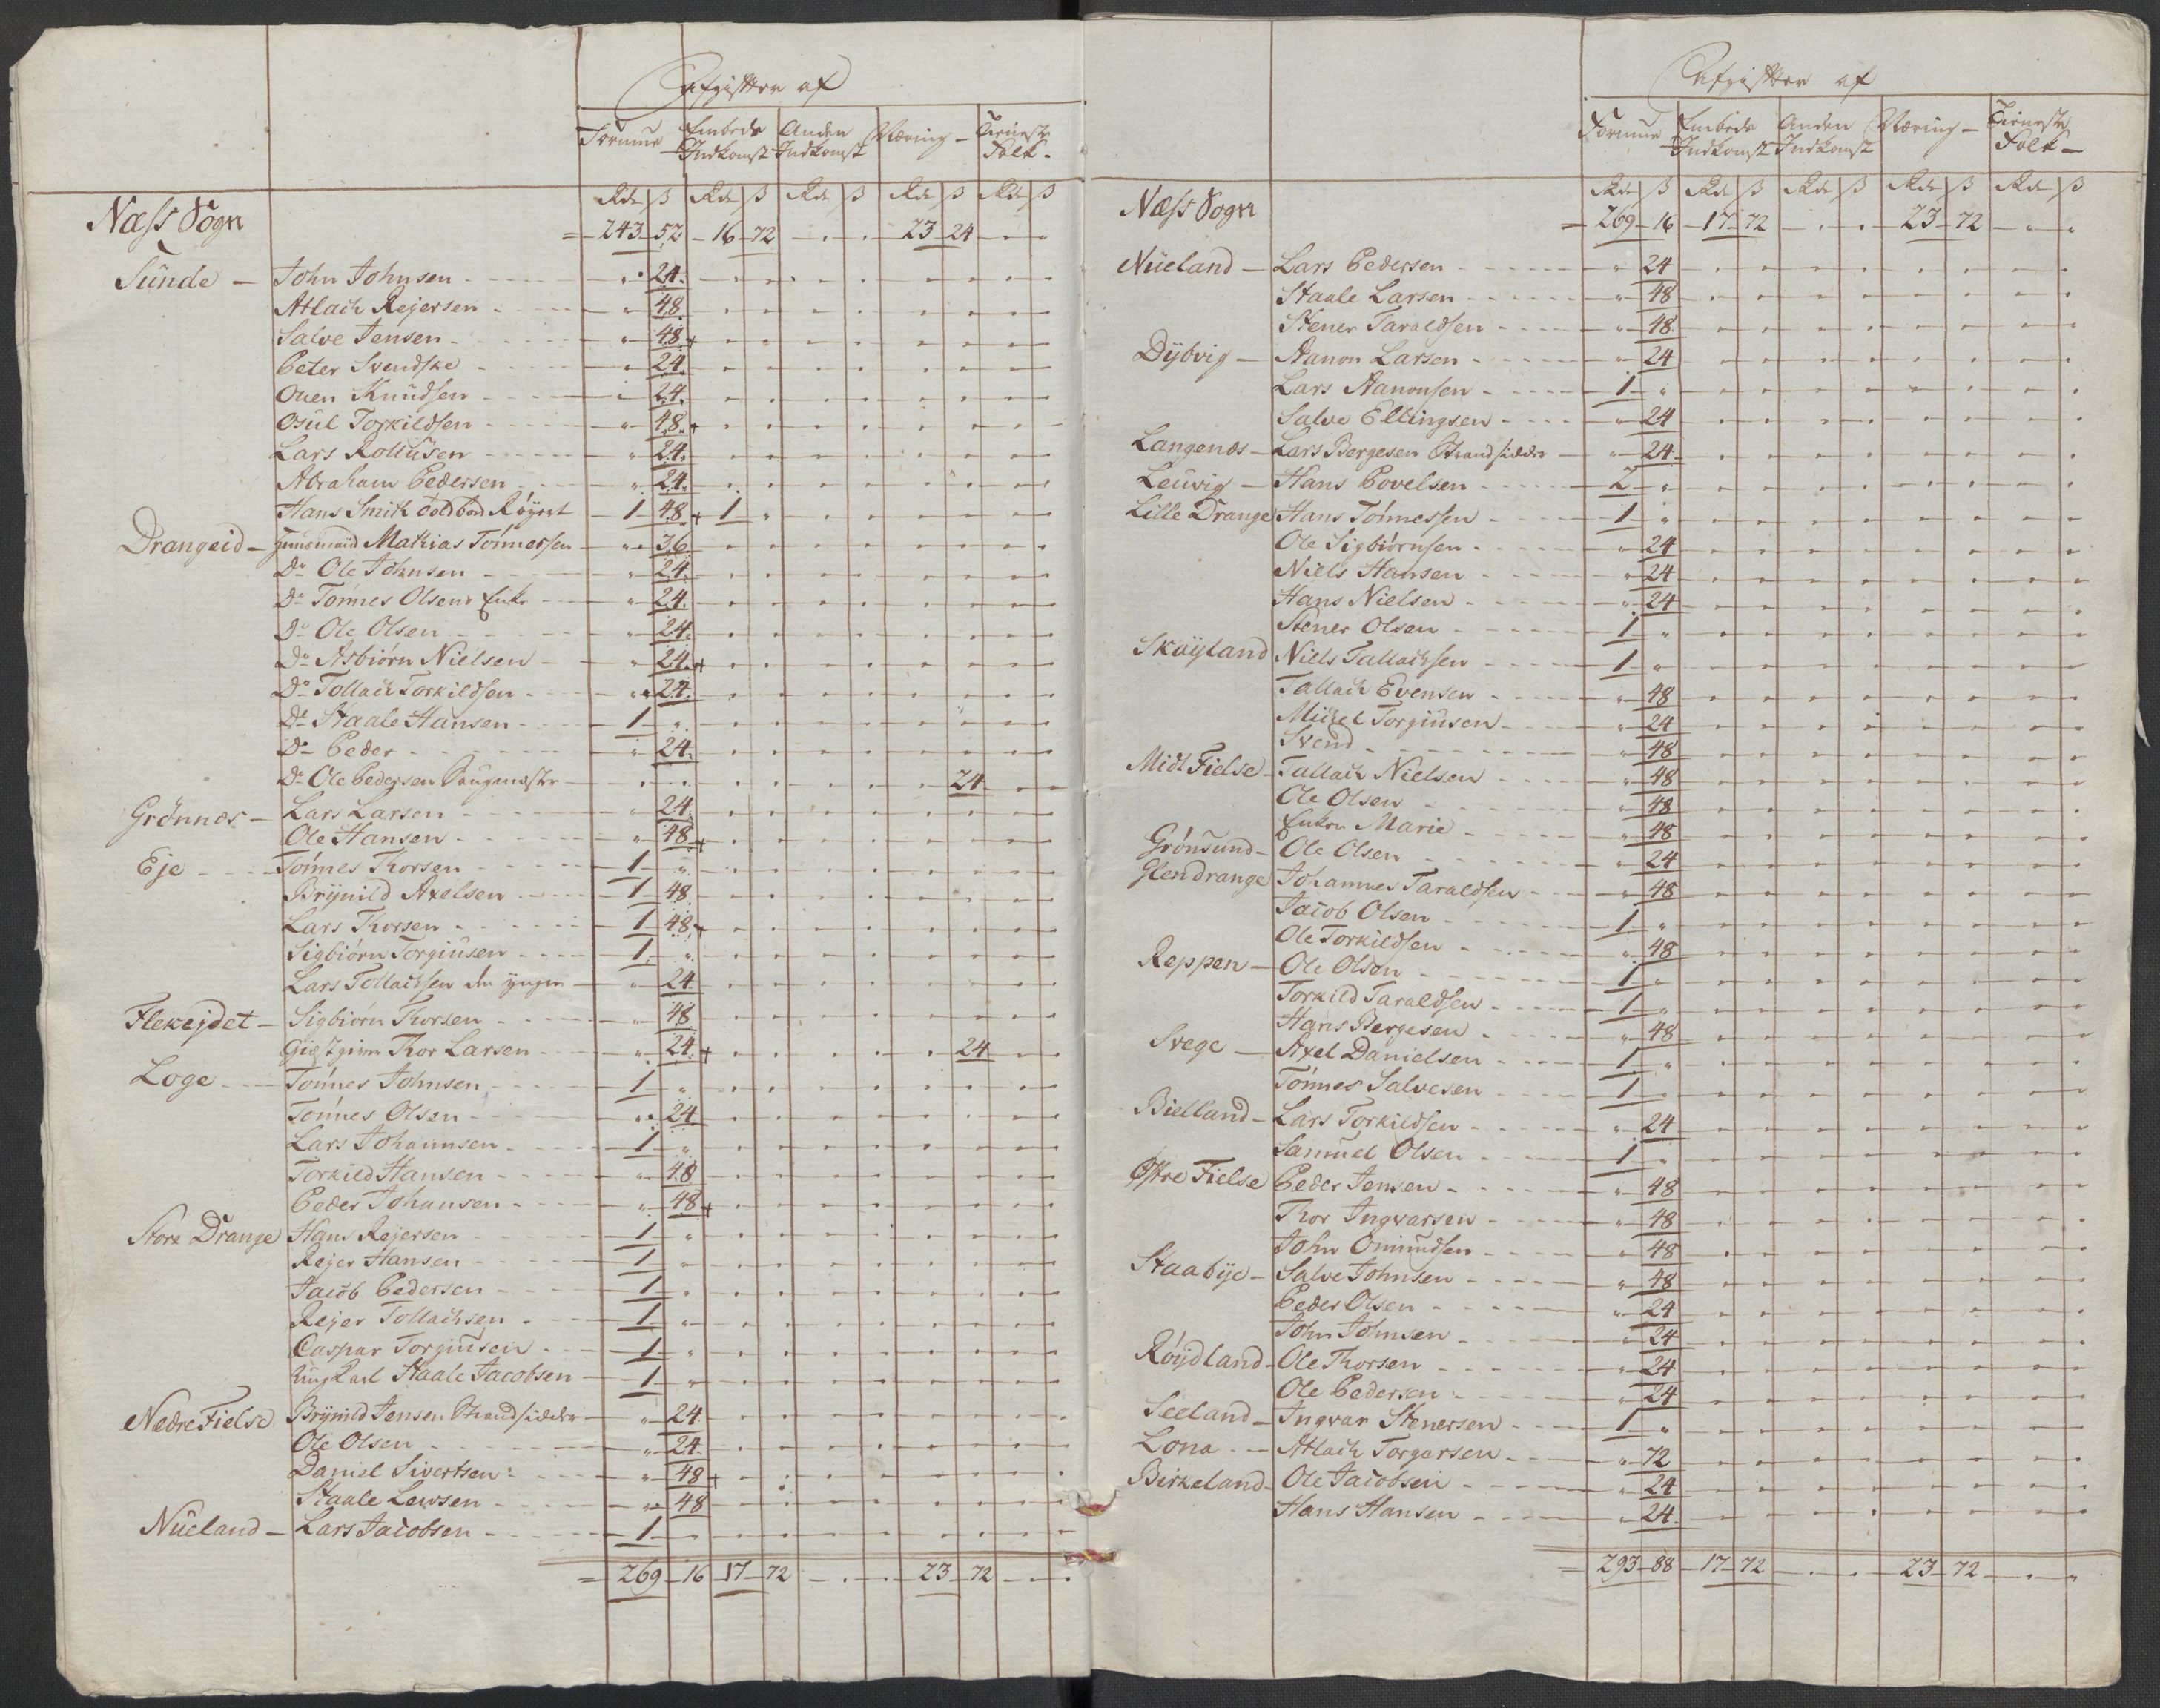 Afgifter af
Formue Embeds Indkomst Anden Indkomst Næring Tieneste Folk
Rd ß Rd ß Rd ß Rd ß Rd ß
Næss Sogn = 243 52 16 72 23 24
Sünde - John Johnsen 24
Atlach Rejersen 48
Salve Jensen 48
Peter Svendske 24
Ouen Knudsen 24
Osul Torkildsen 48
Lars Rollüsen 24
Abraham Pedersen 24
Hans Smith Toldbod 1 48 1
Drangeid - Mathias Tönnessen 36
Do Ole Johnsen 24
Do Tönnes Olsens Enke 24
Do Ole Olsen 24
Do Asbiörn Nielsen 24
Do Tollach Torkildsen 24
Do Staale Hansen 1
Do Peder 24
Do Ole Pedersen Saugmester 24
Grönnæs - Lars Larsen 24
Ole Hansen 48
Eje - Tönnes Thorsen 1
Brÿnild Axelsen 1 48
Lars Thorsen 1 48
Sigbiörn Torgiusen 1
Lars Tollachsen den yngre 24
Flekejdet - Sigbiörn Thorsen 48
Thor Larsen 24 24
Loge - Tönnes Johnsen 1
Tönnes Olsen 24
Lars Johannsen 1
Torkild Hansen 48
Peder Johansen 48
Store Drange Hans Rejersen 1
Rejer Hansen 1
Jacob Pedersen 1
Rejer Tollachsen 1
Caspar Torgiusen 1
Ung Karl Staale Jacobsen 1
Nedre Fielse Brÿnild Jensen Strandsidder 24
Ole Olsen 24
Daniel Sivertsen 48
Staale Lewsen 48
Nüeland - Lars Jacobsen 1
= 269 16 17 72 23 72
Afgifter af
Formue Embeds Indkomst Anden Indkomst Næring Tieneste Folk
Rd ß Rd ß Rd ß Rd ß Rd ß
Næss Sogn = 269 16 17 72 23 72
Nüeland - Lars Pedersen 24
Staale Larsen 48
Stener Taraldsen 48
Dÿbvig - Aanon Larsen 24
Lars Aanonsen 1
Salve Ellingsen 24
Langenæs - Lars Bergesen Strandsidder 24
Leüvig - Hans Povelsen 2
Lille Drange Hans Tönnessen 1
Ole Sigbiörnsen 24
Niels Hansen 24
Hans Nielsen 24
Stener Olsen 1
Skoÿland Niels Tallachsen 1
Tallach Evensen 48
Michel Torgiusen 24
Svend 48
Midt Fielse - Tallach Nielsen 48
Ole Olsen 48
Enken Marie 48
Grönsund - Ole Olsen 24
Glendrange Johannes Taraldsen 48
Jacob Olsen 1
Ole Torkildsen 48
Reppen - Ole Olsen 1
Torkild Taraldsen 1
Hans Bergesen 48
Svege - Axel Danielsen 1
Tönnes Salvesen 1
Bielland - Lars Torkildsen 24
Samuel Olsen 1
Östre Fielse Peder Jensen 48
Thor Ingvarsen 48
John Omundsen 48
Staabÿe - Salve Johnsen 48
Peder Olsen 24
John Johnsen 24
Röÿdland - Ole Thorsen 24
Ole Pedersen 24
Seeland - Ingvar Stenersen 1
Lona - Atlach Torgersen 72
Birkeland - Ole Jacobsen 24
Hans Hansen 24
= 293 88 17 72 23 72